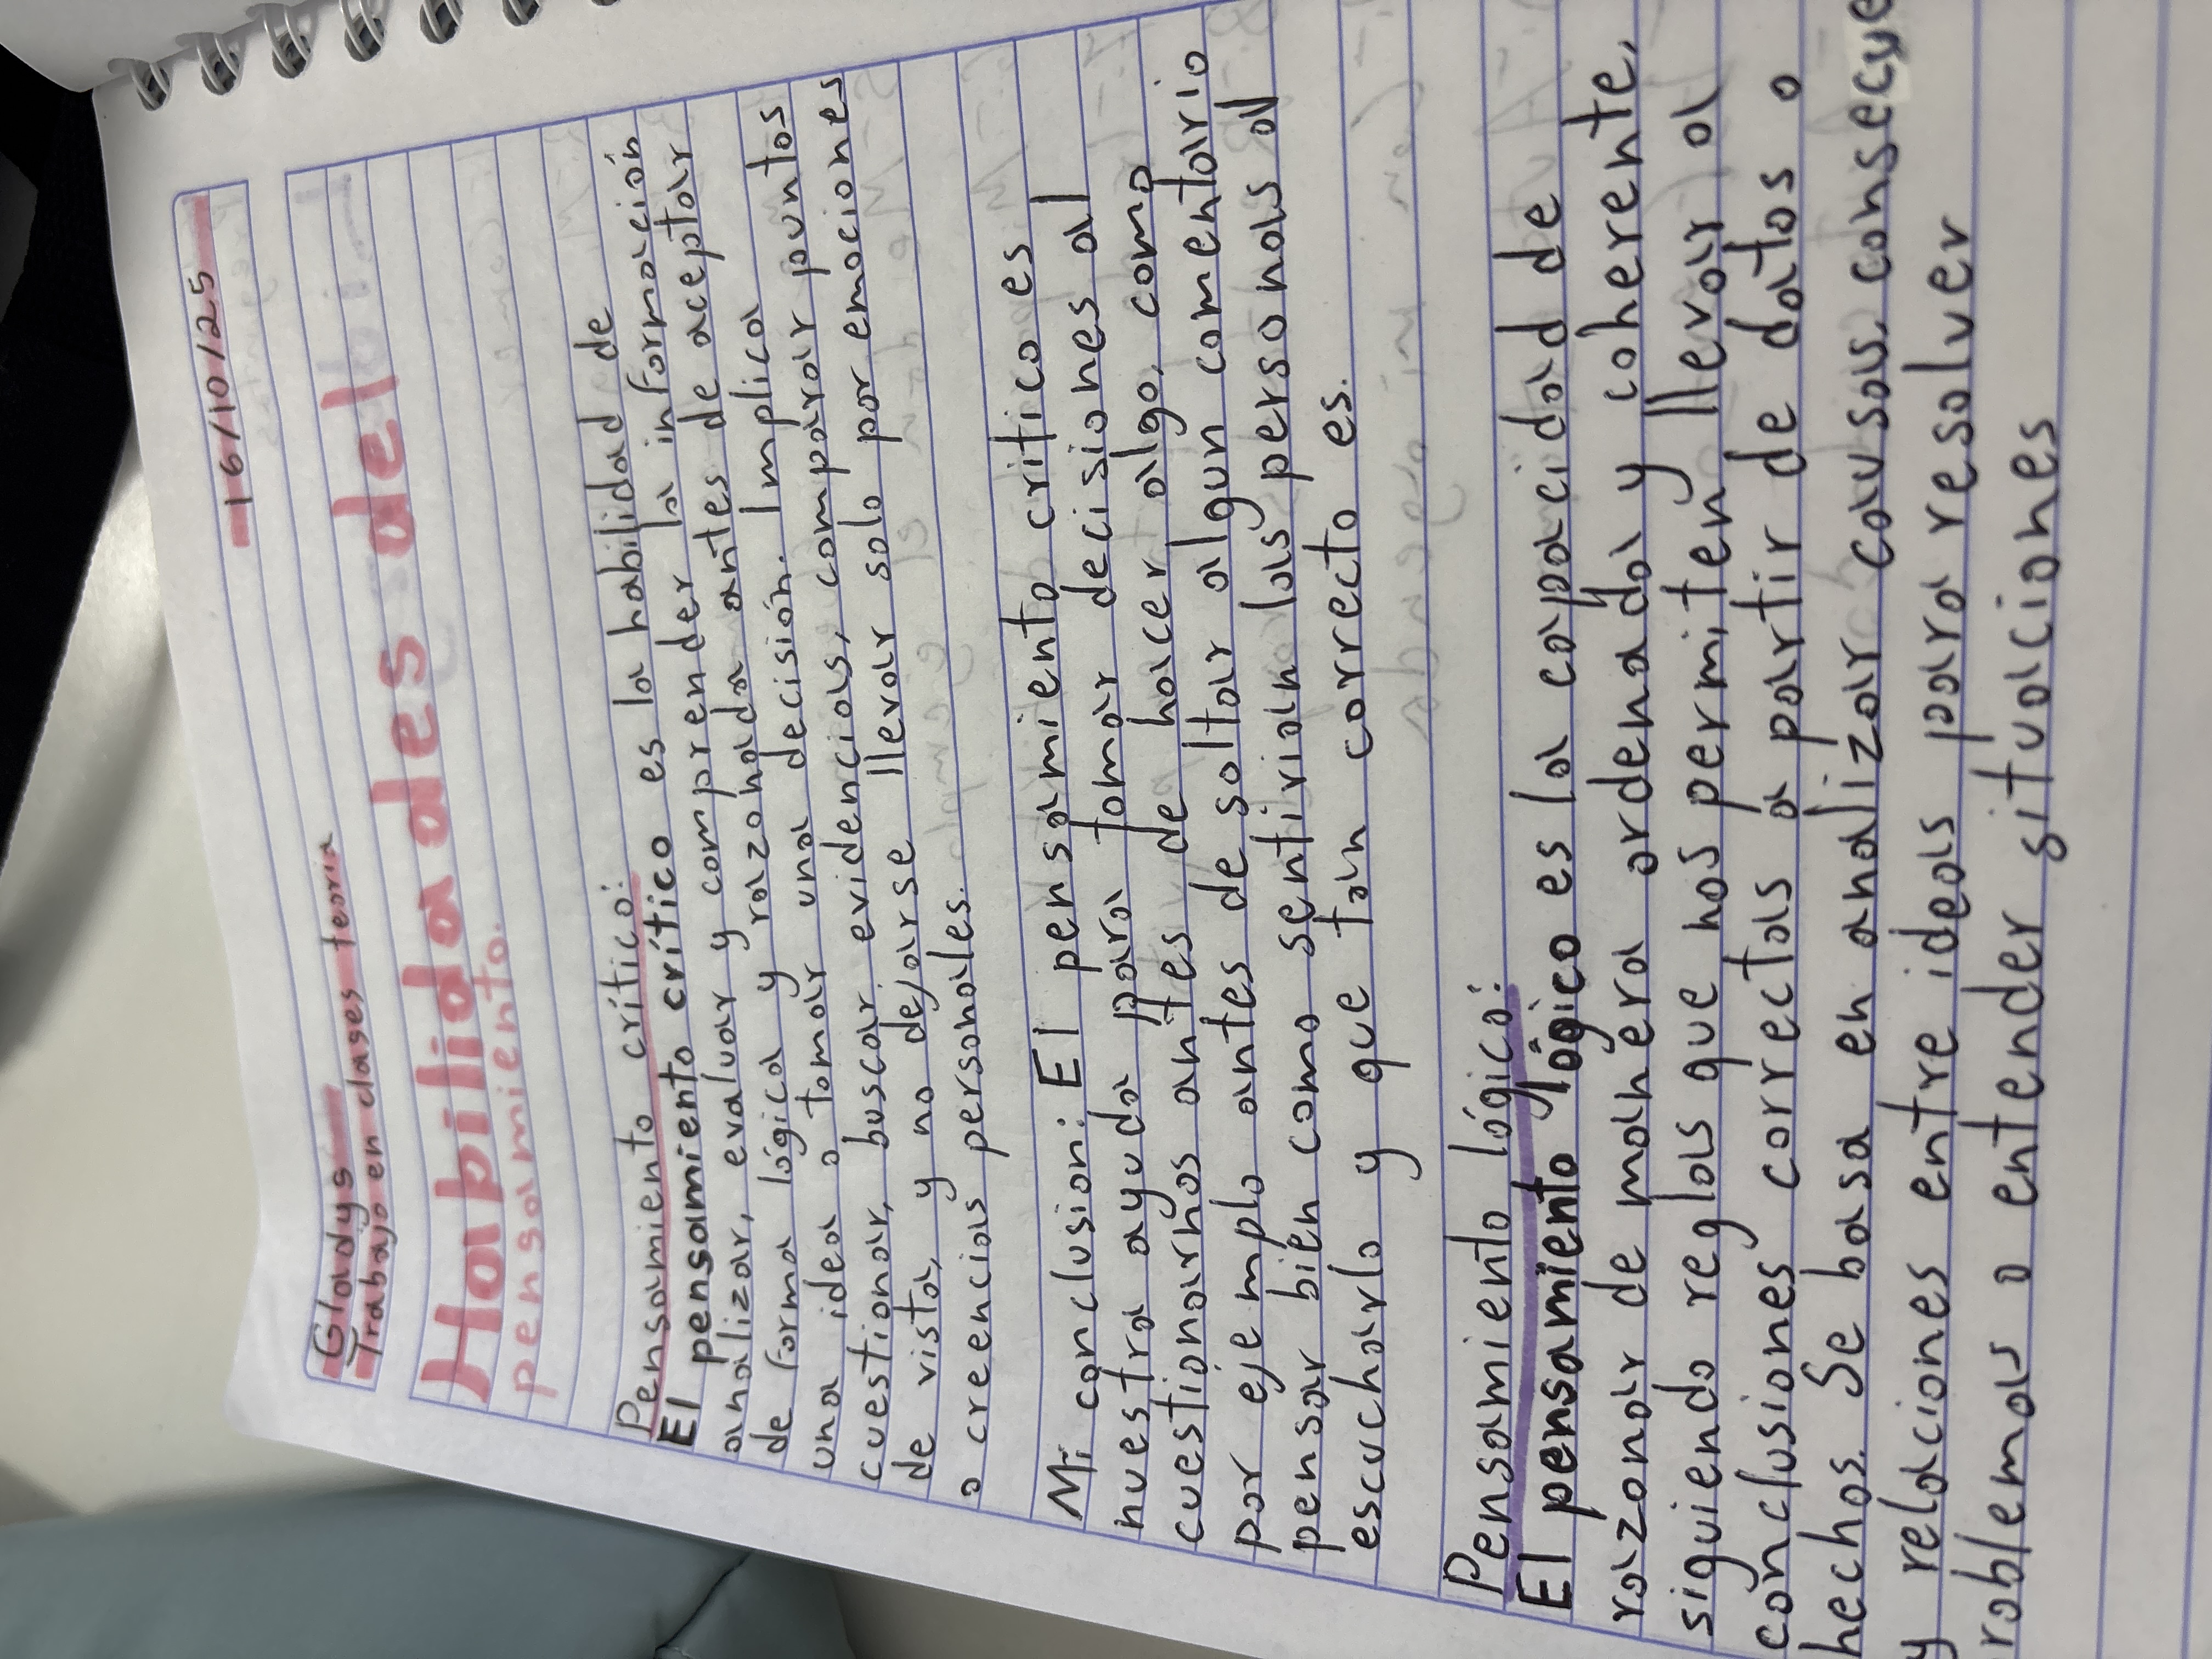 Gladys
16/10/25
Trabajo en clases teoria
Habilidades del
pensamiento.
Pensamiento crítico:
El pensamiento crítico es la habilidad de
analizar, evaluar y comprender la información
de forma lógica y razonada antes de aceptar
una idea o tomar una decisión. Implica
cuestionar, buscar evidencias, comparar puntos
de vista, y no dejarse llevar solo por emociones
o creencias personales.
Mi conclusion: El pensamiento critico es
nuestra ayuda para tomar decisiones al
cuestionarnos antes de hacer algo, como
por ejemplo antes de soltar algun comentario
pensar bien como sentirian las personas al
escucharlo y que tan correcto es.
Pensamiento lógico:
El pensamiento lógico es la capacidad de
razonar de manera ordenada y coherente,
siguiendo reglas que nos permiten llevar a
conclusiones correctas a partir de datos o
hechos. Se basa en analizar causas, consecue
y relaciones entre ideas para resolver
roblemas o entender situaciones